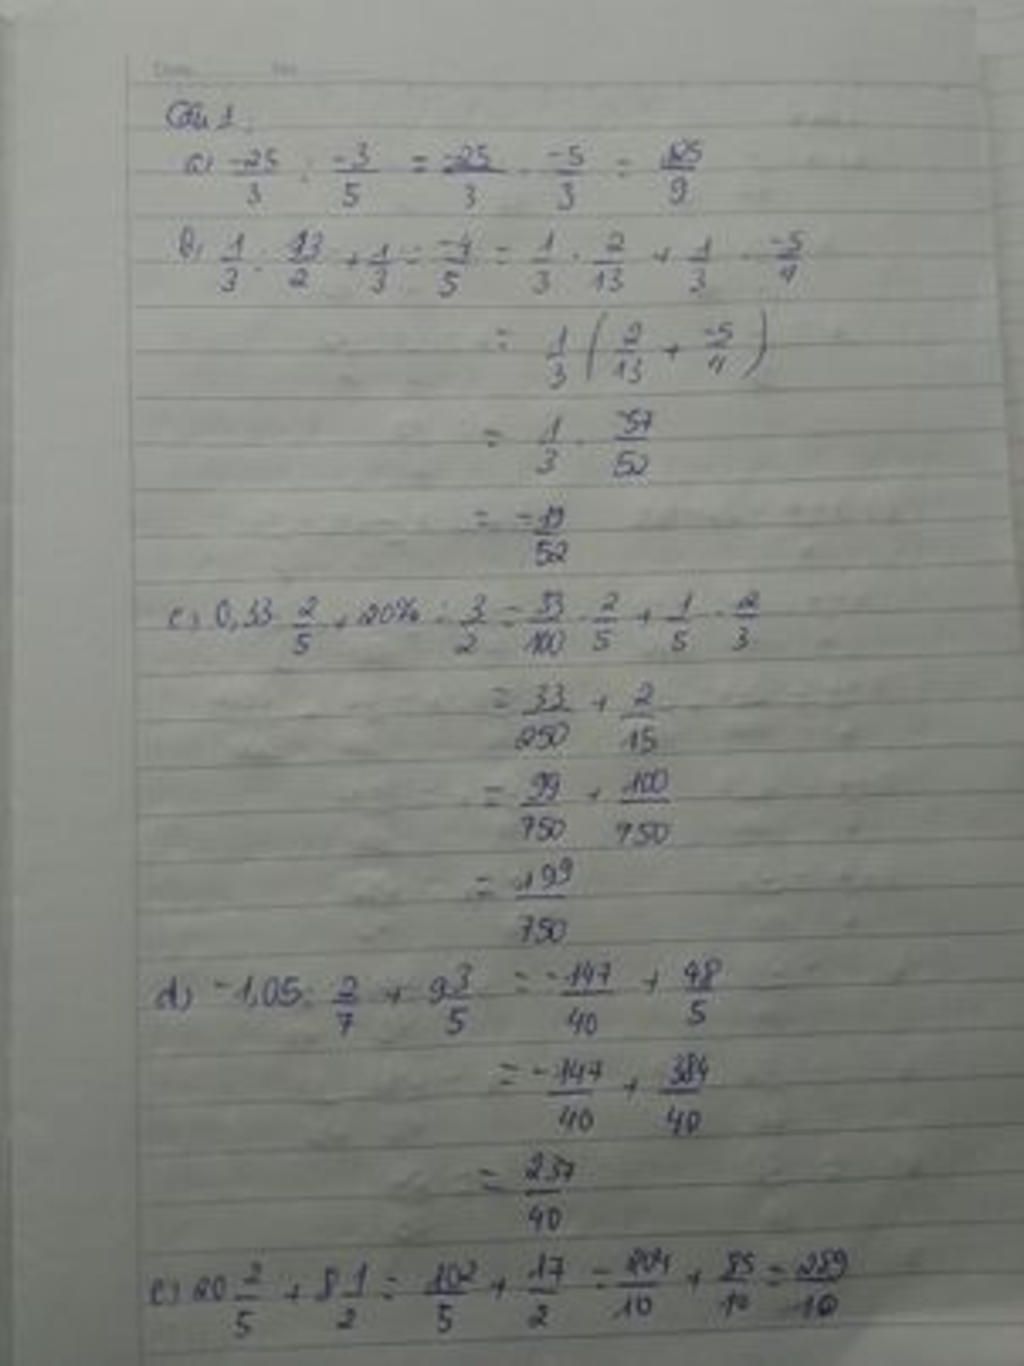 Câu 1:
a) -25/3 : -3/5 = -25/3 . -5/3 = 125/9
b) 1/3 : 13/2 + 1/3 : -4/5 = 1/3 . 2/13 + 1/3 . -5/4
= 1/3 ( 2/13 + -5/4 )
= 1/3 . -57/52
= -19/52
c) 0,33 . 2/5 + 20% : 3/2 = 33/100 . 2/5 + 1/5 . 2/3
= 33/250 + 2/15
= 99/750 + 100/750
= 199/750
d) -1,05 : 2/7 + 9 3/5 = -147/40 + 48/5
= -147/40 + 384/40
= 237/40
e) 20 2/5 + 8 1/2 = 102/5 + 17/2 = 204/10 + 85/10 = 289/10